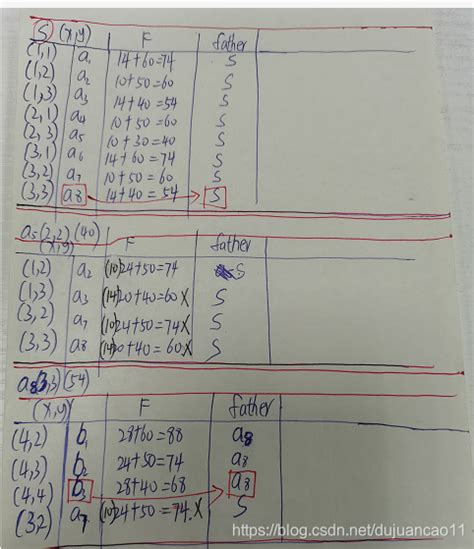 S (x,y) F father
(1,1) a1 14+60=74 S
(1,2) a2 10+50=60 S
(1,3) a3 14+40=54 S
(2,1) a4 10+50=60 S
(2,3) a5 10+30=40 S
(3,1) a6 14+60=74 S
(3,2) a7 10+50=60 S
(3,3) a8 14+40=54 S
a5(2,2)(40)
(x,y) F father
(1,2) a2 (10)24+50=74 S
(1,3) a3 (14)20+40=60X S
(3,2) a7 (10)24+50=74X S
(3,3) a8 (14)20+40=60X S
a8(3,3)(54)
(x,y) F father
(4,2) b1 28+60=88 a8
(4,3) b2 24+50=74 a8
(4,4) b3 28+40=68 a8
(3,2) a7 (10)24+50=74.X S
https://blog.csdn.net/dujuancao11